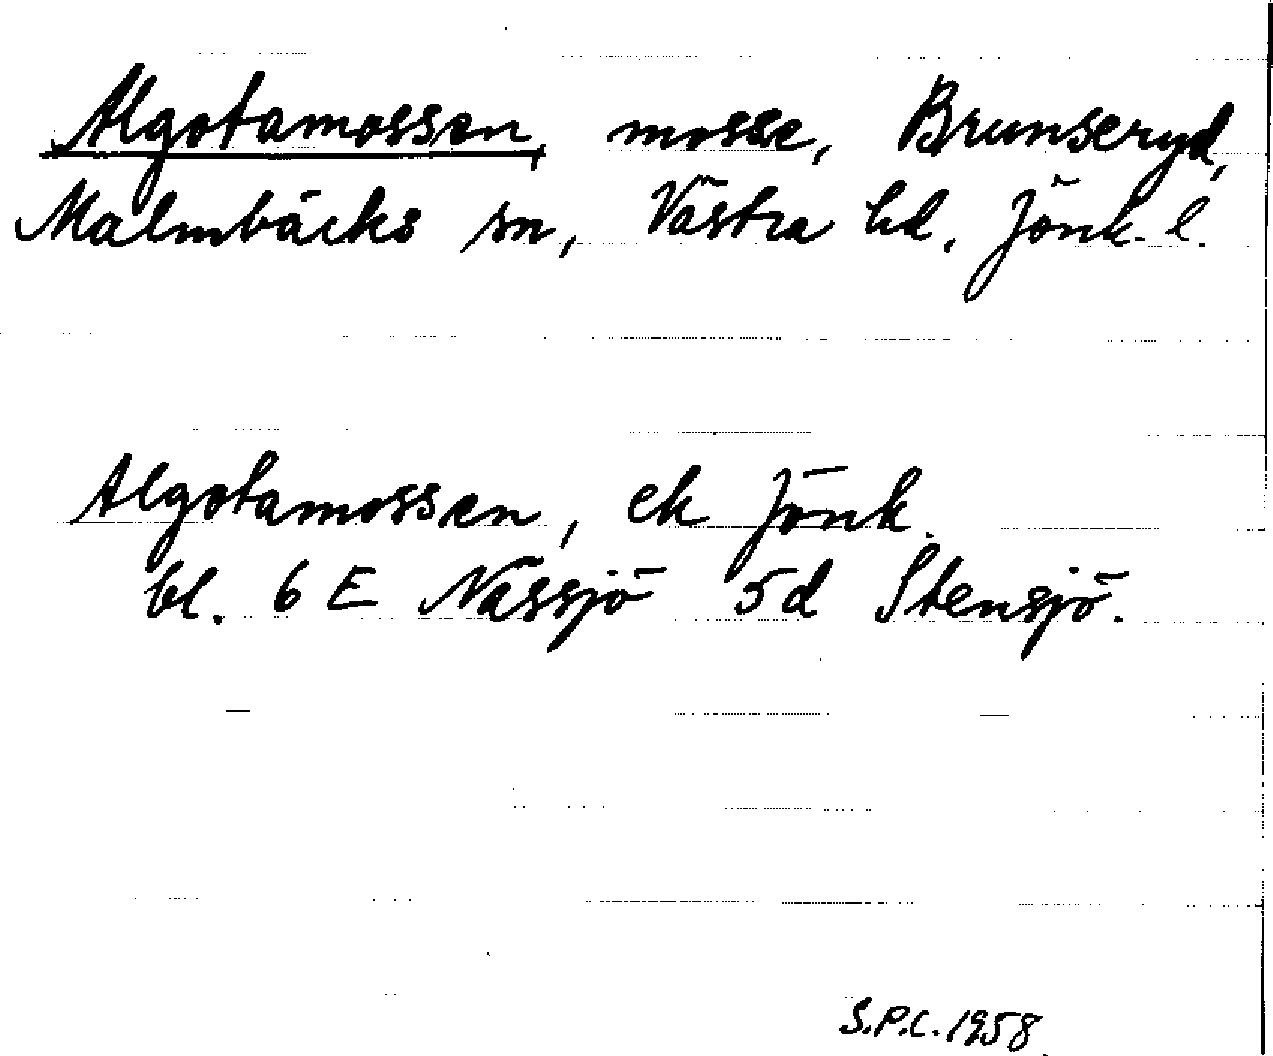 Algotamossen, mosse, Brunseryd,
Malmbäcks sn, Västra hd, Jönk. l.
Algotamossen, ek Jönk.
bl. 6 E Nässjö 5d Stensjö.
S.P.C. 1958